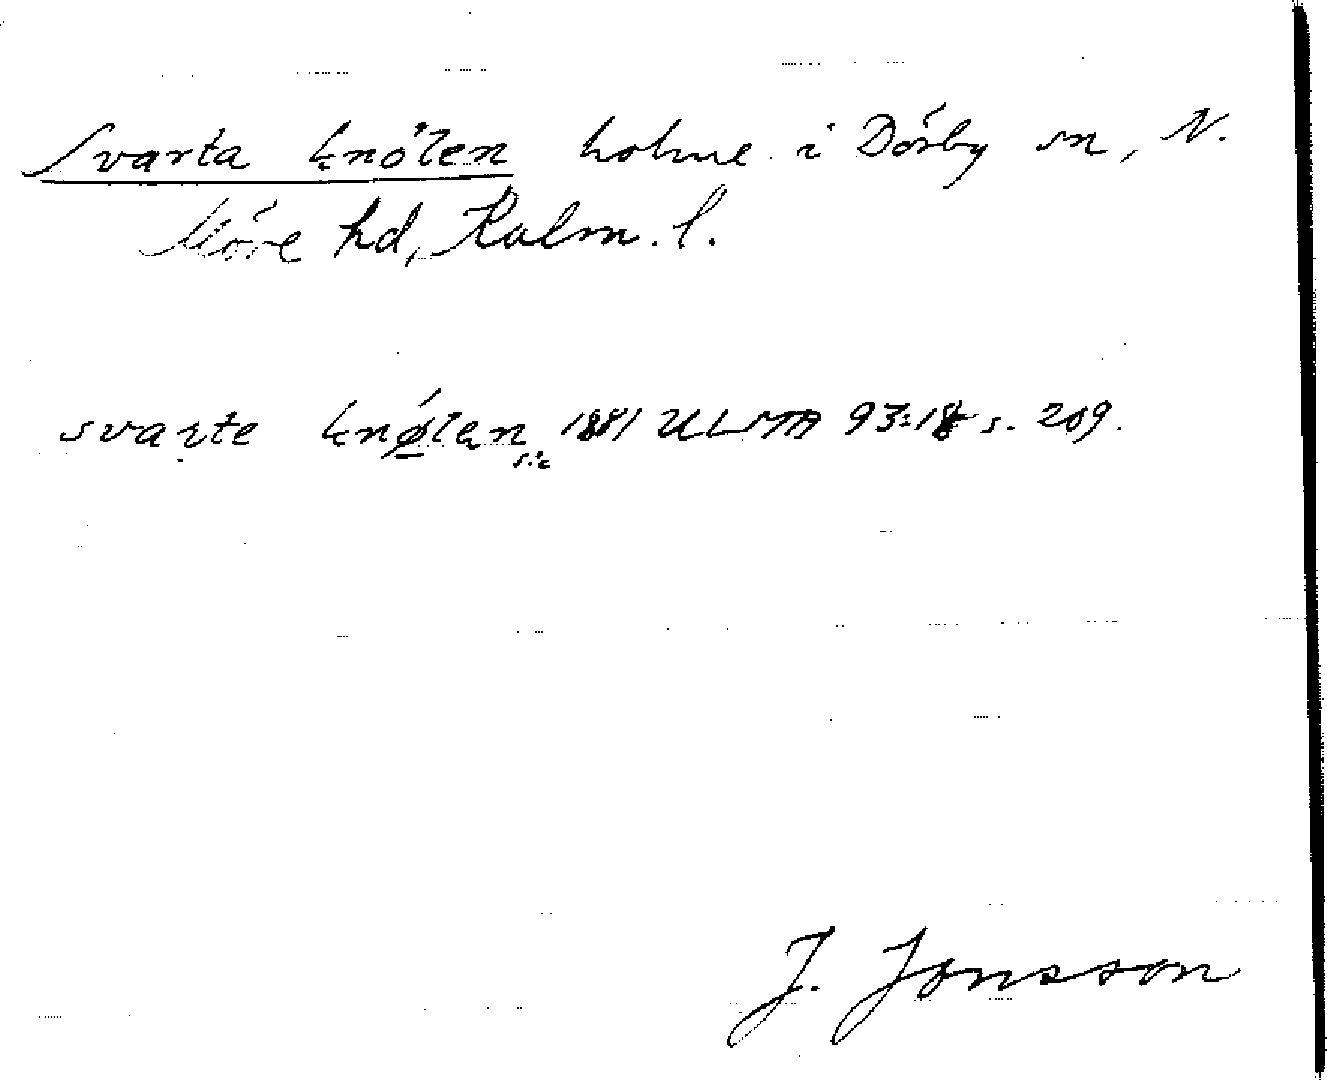 Svarta knölen holme i Dörby sn, N.
Möre hd, Kalm. l.
svarte knølen 1881 ULMA 93:18 s. 209.
sic
J. Jonsson